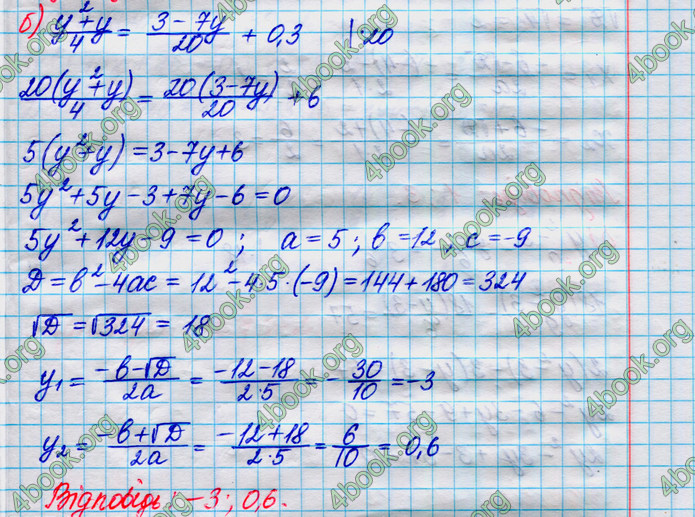 б) (y²+y)/4 = (3-7y)/20 + 0,3 | 20
20(y²+y)/4 = 20(3-7y)/20 + 6
5(y²+y) = 3-7y+6
5y²+5y-3+7y-6=0
5y²+12y-9=0; a=5; b=12, c=-9
D=b²-4ac = 12²-4·5·(-9)=144+180=324
√D = √324 = 18
y₁ = (-b-√D)/2a = (-12-18)/2·5 = -30/10 = -3
y₂ = (-b+√D)/2a = (-12+18)/2·5 = 6/10 = 0,6
Відповідь: -3; 0,6.
4book.org